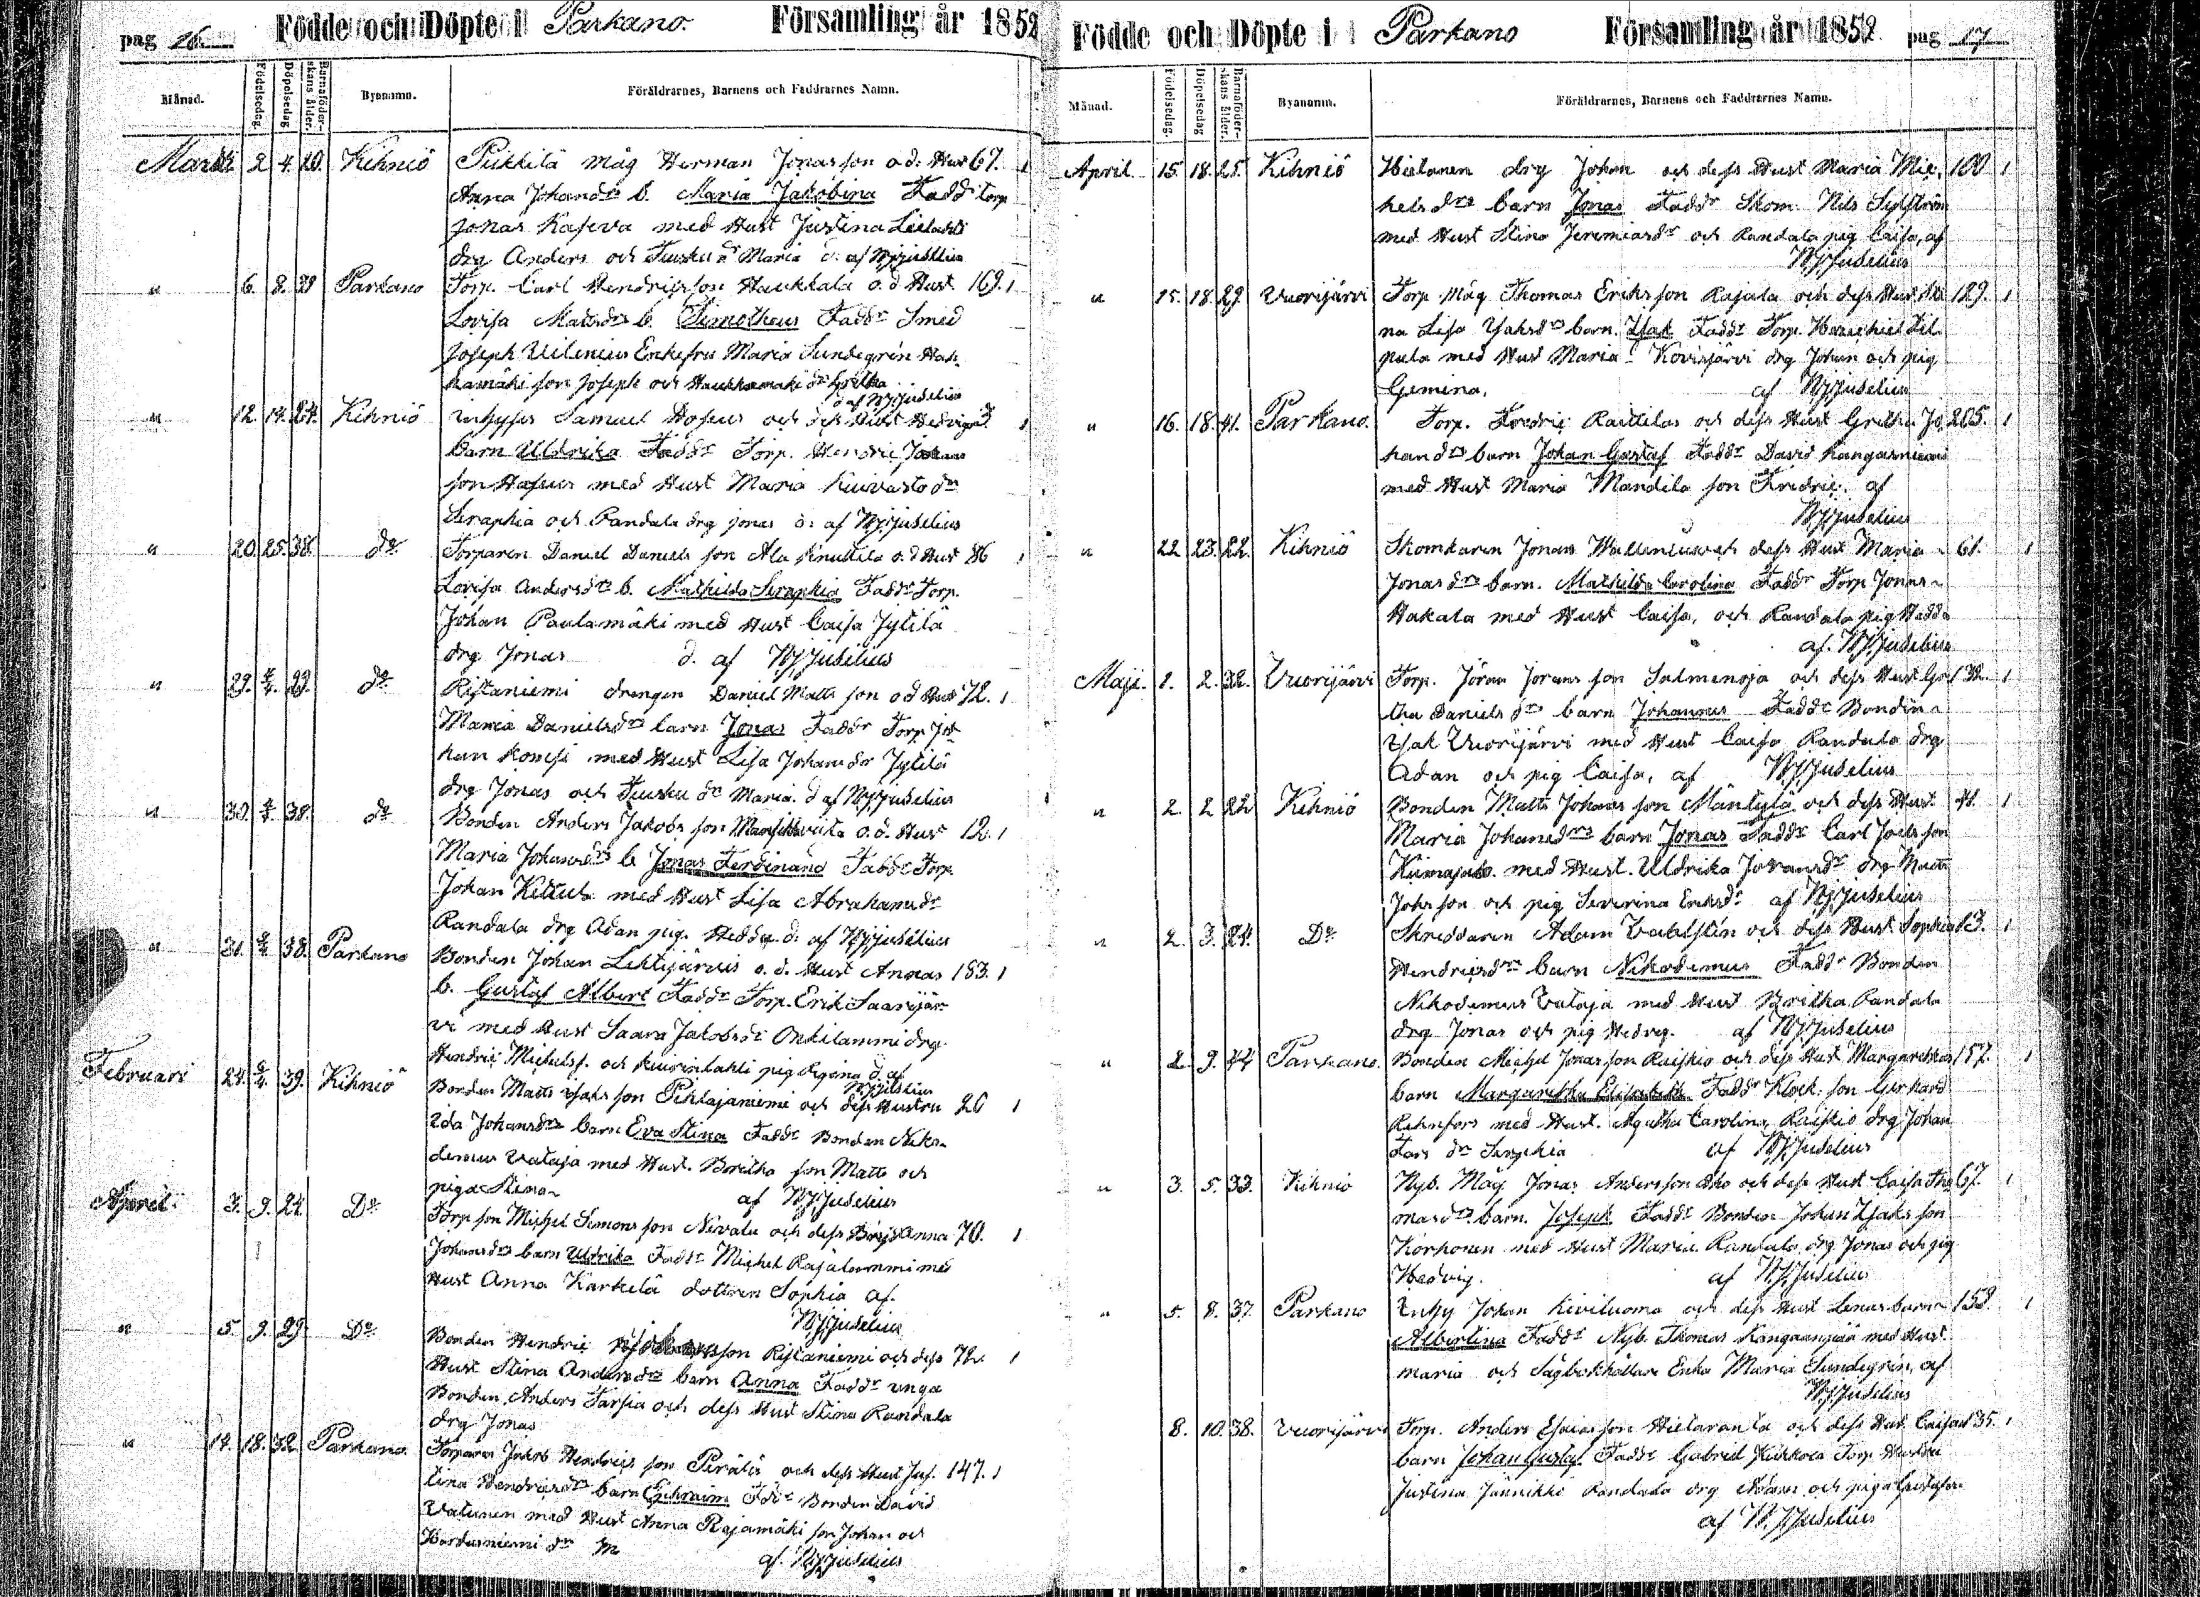 pag 26 Födde och Döpte i Parkano. Församling år 1852
Månad. Födelsedag. Döpelsedag Barnaföderskans ålder. Byanamn. Föräldrarnes, Barnens och Faddrarnes Namn.
Martii 2 4 20. Kihniö Pukkilä Måg Herman Jonasson o. d. Hust 67. 1
Anna Johansdr b. Maria Jakobina Faddr torp
Jonas Kaseva med Hust Justina
drg Anders och dr Maria d. af WJJuselius
" 6. 8. 29 Parkano Torp. Carl Hendricsson Haukkala o. d Hust 169. 1
Lovisa Mattsdr b. Timotheus Faddr Smed
Joseph Enkefru Maria Sundegrén
son Joseph och dr Gretha
d af WJJuselius
" 12. 14. 24. Kihniö Inhyses Samuel och dess Hust Hedvig 3. 1
barn Uldrika Faddr Torp. Hendric Johans
son med Hust Maria Kuivasto dr
Seraphia och Randala drg Jonas d: af WJJuselius
" 20. 25. 38. do Torparen Daniel Daniels son Ala Knuttila o. d Hust 86 1
Lovisa Andersdr b. Mathilda Seraphia Faddr Torp.
Johan Paulamäki med Hust Caisa Jylilä
drg Jonas d. af WJJuselius
" 29. 29. do Ristaniemi drengen Daniel Matts son o d Hust 72. 1
Maria Danielsdr barn Jonas Faddr Torp Jo
han med Hust Lisa Johansdr Jylilä
drg Jonas och dr Maria. d af WJJuselius
" 30. 38. do Bonden Anders Jakobs son o. d. Hust 12. 1
Maria Johansdr b Jonas Ferdinand Faddr Torp
Johan med Hust Lisa Abrahamsdr
Randala drg Adan pig. Hedda d. af WJJuselius
" 31. 38. Parkano Bonden Johan Lehtijärvis o. d. Hust Annas 153. 1
b. Gustaf Albert Faddr Torp. Erik Saarijär
vi med Hust Saara Jakobsdr Onkilammi drg
Hendric Michelss. och pig d. af
WJJuselius
Februari 24. 39. Kihniö Bonden Matts Isaks son Pihlajaniemi och dess Hustru 26 1
Eda Johansdr barn Eva Stina Faddr Bonden Niko
demus Vataja med Hust. Britha son Matts och
piga Stina af WJJuselius
April 3. 9. 24. Do Torp son Michel Simons son Nevala och dess Anna 70. 1
Johansdr barn Uldrika Faddr Michel Rajalammi med
Hust Anna Karkelä dottren Sophia af
WJJuselius
" 5. 9. 29. Do Bonden Hendric son Ristaniemi och dess 72. 1
Hust Stina Andersdr barn Anna Faddr unga
Bonden Anders och dess Hust Stina Randala
drg Jonas
" 14. 18. 32. Parkano Torparen Jakob Hendrics son Perälä och dess Hust Jus 147. 1
tina Hendricsdr barn Ephraim Fddr Bonden David
Vatunen med Hust Anna Rajamäki son Johan och
dr M
af. WJJuselius
Födde och Döpte i Parkano Församling år 1852 pag 17
Månad. Födelsedag. Döpelsedag Barnaföderskans ålder. Byanamn. Föräldrarnes, Barnens och Faddrarnes Namn.
April 15. 18. 25. Kihniö Hietanen drg Johan och dess Hust Maria Mic 100 1
helsdrs barn Jonas Faddr Skom. Nils
med Hust Stina Jeremiasdr och Randala pig Caisa, af
WJJuselius
" 15. 18. 29. Vuorijärvi Torp. Måg Thomas Eriks son Rajala och dess Hust 129. 1
na Lisa Isaksdrs barn. Isak Faddr Torp.
pula med Hust Maria Kovisjärvi drg Johan och pig
Gemina, af WJJuselius
" 16. 18. 41. Parkano. Torp. Fredric Raittilas och dess Hust Gretha Jo 205. 1
hansdrs barn Johan Gustaf Faddr David Kangasniemi
med Hust Maria Mandila son Fredric. af
WJJuselius
" 22. 23. 22. Kihniö Skomkaren Jonas Wallenius och dess Hust Maria 61. 1
Jonasdrs barn. Mathilda Carolina Faddr Torp Jonas
Hakala med Hust Caisa, och Randala pig Hedda
af. WJJuselius
Maji. 1. 2. 32. Vuorijärvi Torp. Jöran Jörans son Salmenoja och dess Hust Gre 132. 1
tha Daniels drs barn Johannes Faddr Bonden
Isak Vuorijärvi med Hust Caisa Randala drg
Adan och pig Caisa, af WJJuselius
" 2. 2 22 Kihniö Bonden Matts Johans son Mäntylä och dess Hust 41. 1
Maria Johansdrs barn Jonas Faddr Carl Joels son
med Hust. Uldrika Johansdr drg Matts
Johs son och pig Severina Ericsdr af WJJuselius
" 2. 3. 24. Do Skreddaren Adam och dess Hust Sophia 13. 1
Hendricsdrs barn Nikodemus Faddr Bonden
Nikodemus Vataja med Hust Britha Randala
drg Jonas och pig Hedvig. af WJJuselius
" 2. 9. 44 Parkano. Bonden Michel Jonas son Raiskio och dess Hust Margarethas 157. 1
barn Margaretha Elisabeth Faddr Klock. son Gerhard
Rehnfors med Hust. Agatha Carolina, Raiskio drg Johan
dr Seraphia af WJJuselius
" 3. 5. 33. Kihniö Nyb. Måg Jonas Andersson Aho och dess Hust Caisa Tho 67. 1
masdrs barn. Joseph Faddr Bonden Johan Isaks son
Korhonen med Hust Maria. Randala drg Jonas och pig
Hedvig. af WJJuselius
" 5. 8. 37. Parkano Inhy Johan Kiviluoma och dess Hust Lenas barn 153. 1
Albertina Faddr Nyb. Thomas Kangaanpää med Hust
maria och Sågbokhållare Enka Maria Sundegrén, af
WJJuselius
8. 10. 38. Vuorijärvi Torp. Anders Esaias son Hietaranta och dess Hust Caisas 135. 1
barn Johan Gustaf Faddr Gabriel Kiikkola Torp Hustru
Justina Jännikki Randala drg Adam och piga
af WJJuselius